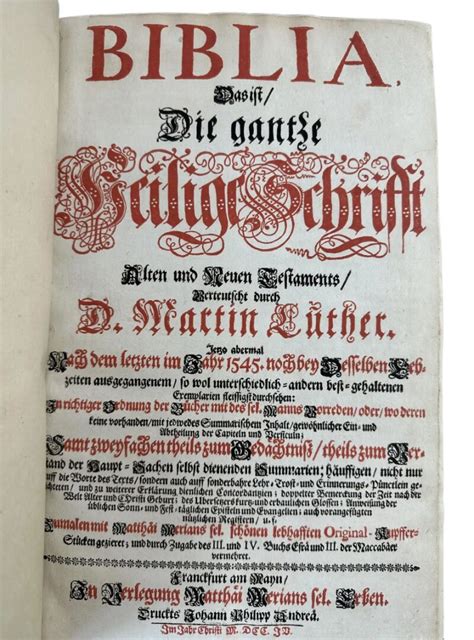 BIBLIA,
Das ist/
Die gantze
Heilige Schrifft
Alten und Neuen Testaments/
Verteutscht durch
D. Martin Luther.
Jetzo abermal
Nach dem letzten im Jahr 1545. noch bey Desselben Leb-
zeiten ausgegangenem/ so wol unterschiedlich-andern best-gehaltenen
Exemplarien fleissigst durchsehen:
In richtiger Ordnung der Bücher mit des sel. Manns Vorreden/ oder/ wo deren
keine vorhanden/ mit jedwedes Summarischem Inhalt/ gewöhnlicher Ein- und
Abtheilung der Capiteln und Versiculn;
Samt zweyfachen theils zum Gedächtnüß/ theils zum Ver-
stand der Haupt-Sachen selbst dienenden Summarien; häuffigen/ nicht nur
auff die Worte des Texts/ sondern auch auff sonderbahre Lehr-Trost- und Erinnerungs-Pünctlein ge-
richteten/ und zu weiterer Erklärung dienlichen Concordantzien; doppelter Bemerckung der Zeit nach der
Welt Alter und Christi Geburt; des Ubersetzers kurtz- und erbaulichen Glossen; Anweisung der
üblichen Sonn- und Fest-täglichen Episteln und Evangelien; auch vorangefügten
nützlichen Registern/ u.s.f.
Zumalen mit Matthäi Merians sel. schönen lebhafften Original-Kupffer-
Stücken gezieret; und durch Zugabe des III. und IV. Buchs Esrä und III. der Maccabäer
vermehret.
Franckfurt am Mayn/
In Verlegung Matthäi Merians sel. Erben.
Druckts Johann Philipp Andreä.
Im Jahr Christi M. DCC. IV.